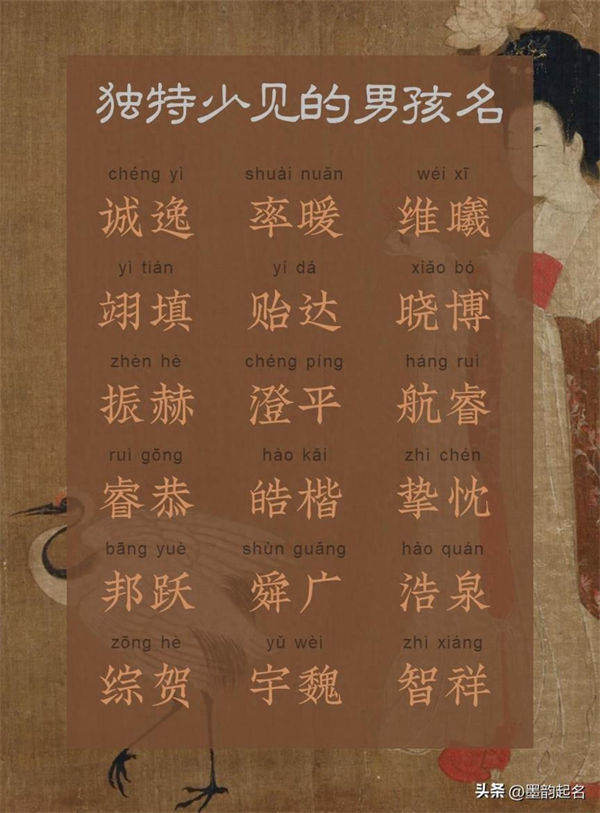 独特少见的男孩名
chéng yì shuài nuǎn wéi xī
诚逸 率暖 维曦
yì tián yí dá xiǎo bó
翊填 贻达 晓博
zhèn hè chéng píng háng ruì
振赫 澄平 航睿
ruì gōng hào kǎi zhì chén
睿恭 皓楷 挚忱
bāng yuè shùn guǎng hào quán
邦跃 舜广 浩泉
zōng hè yǔ wèi zhì xiáng
综贺 宇魏 智祥
头条 @墨韵起名